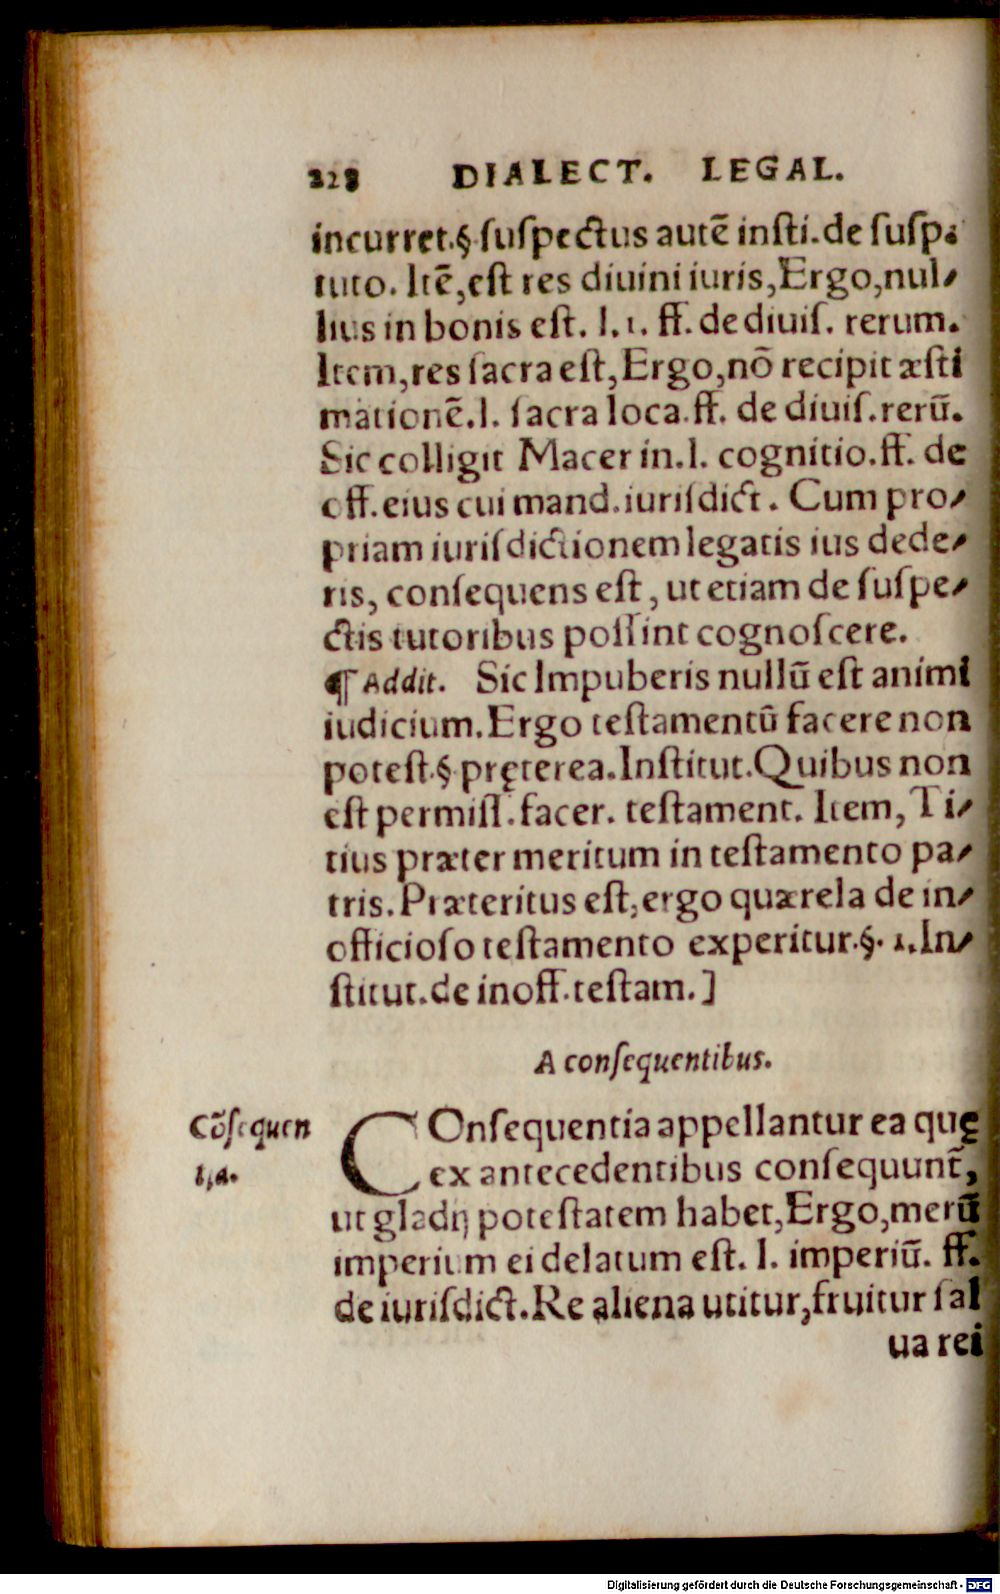 228 DIALECT. LEGAL.
incurret.§ ſuſpectus autē inſti.de ſuſp.
tuto. Itē,eſt res diuini iuris,Ergo,nul⸗
lius in bonis eſt. l.1. ff. de diuiſ. rerum.
Item,res ſacra eſt,Ergo,nō recipit æſti
mationē.l. ſacra loca.ff. de diuiſ.rerū.
Sic colligit Macer in.l. cognitio.ff. de
off.eius cui mand.iuriſdict. Cum pro⸗
priam iuriſdictionem legatis ius dede⸗
ris, conſequens eſt, ut etiam de ſuſpe⸗
ctis tutoribus poſſint cognoſcere.
¶ Addit. Sic Impuberis nullū eſt animi
iudicium.Ergo teſtamentū facere non
poteſt.§ pręterea.Inſtitut.Quibus non
eſt permiſſ.facer. teſtament. Item, Ti⸗
tius præter meritum in teſtamento pa⸗
tris.Præteritus eſt,ergo quærela de in⸗
officioſo teſtamento experitur.§. 1.In⸗
ſtitut.de inoff.teſtam.]
A conſequentibus.
Cōſequen
tia.
COnſequentia appellantur ea quę
ex antecedentibus conſequunt̄,
ut gladij poteſtatem habet,Ergo,merū
imperium ei delatum eſt. l. imperiū. ff.
de iuriſdict.Re aliena utitur,fruitur ſal
ua rei
Digitalisierung gefördert durch die Deutsche Forschungsgemeinschaft - DFG